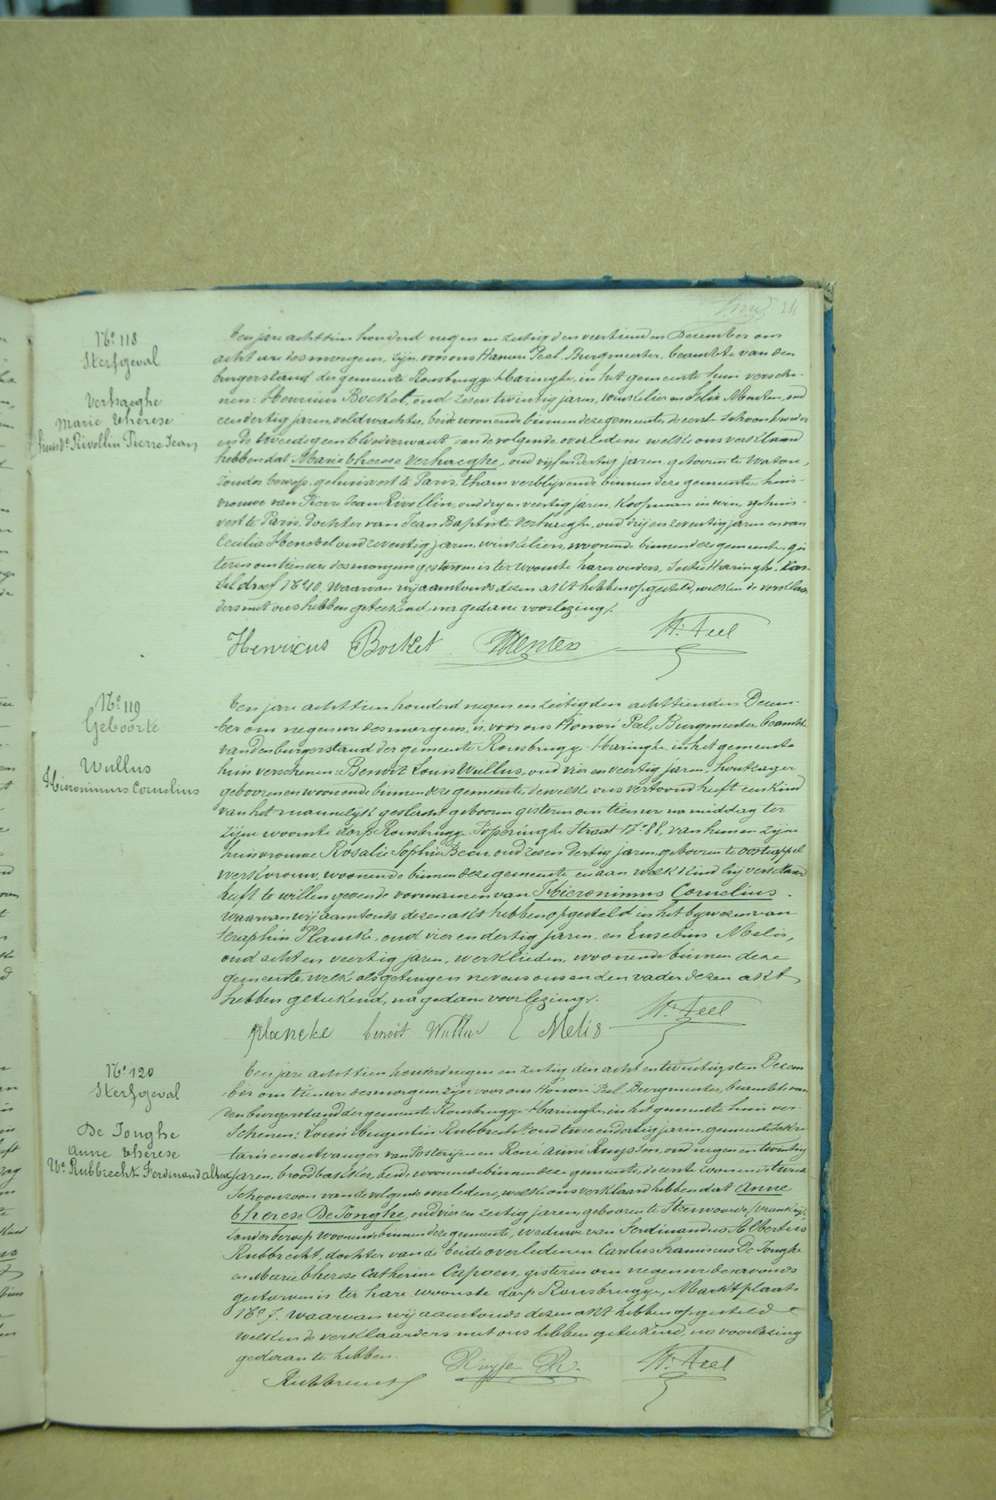 N° 118
Sterfgeval
Verhaeghe
Marie Therese
huisv. Rivollin Pierre Jean
Een jare achttien honderd negen en zestig den veertienden December om
acht ure des morgens, zijn voor ons Honoré Peel, Burgmeester, beambte van den
burgerstand der gemeente Rousbrugge-Haringhe, in het gemeente huis versche-
nen: Henricus Bocket, oud zes en twintig jaren, winkelier en Felix Menten, oud
een dertig jaren, veldwachter, beide woonende binnen deze gemeente, de eerste schoonbroeder
en de tweede geen bloedverwant van de volgende overledene welke ons verklaard
hebben dat Marie Therese Verhaeghe, oud vijf en dertig jaren, geboren te Watou,
zonder beroep, gehuisvest te Parijs, thans verblijvende binnen deze gemeente, huis-
vrouwe van Pierre Jean Rivollin, oud dry en veertig jaren, koopman in wyn, gehuis-
vest te Parijs, dochter van Jean Baptiste Verhaeghe, oud dry en zeventig jaren en van
Cecilia Henstel oud zeventig jaren, winkeliers, woonende binnen deze gemeente, gis-
teren om tien ure des morgens gestorven is ter woonste harer ouders, Sectie Haringhe,
N° 40, waarvan wij aantonds dezen akt hebben opgesteld, welken de verklaar-
ders met ons hebben geteekend, na gedane voorlezing.
Henricus Bocket FMenten H. Peel
N° 119
Geboorte
Wullus
Hieronimus Cornelius
Een jare achttien honderd negen en zestig den achttienden Decem-
ber om negen ure des morgens, is voor ons Honoré Peel, Burgmeester, beambte
van den burgerstand der gemeente Rousbrugge-Haringhe in het gemeente
huis verschenen Benoit Louis Wullus, oud vier en veertig jaren, houtzager
geboren en woonende binnen deze gemeente, dewelke ons vertoond heeft een kind
van het mannelijk geslacht, geboren gisteren om tien ure na middag ter
zijne woonste dorp Rousbrugge, Poperinghe Straat N° 88, van hem en zijne
huisvrouwe Rosalie Sophie Beun oud zes en dertig jaren, geboren te Oostcappel
werkvrouw, woonende binnen deze gemeente en aan welk kind hij verklaard
heeft te willen geven de voornamen van Hieronimus Cornelius.
Waarvan wij aantonds dezen akt hebben opgesteld in het bijwezen van
Seraphin Plancke, oud vier en dertig jaren, en Eusebius Melis,
oud acht en veertig jaren, werklieden, woonende binnen deze
gemeente, welke als getuigen nevens ons en den vader dezen akt
hebben geteekend, na gedane voorlezing.
Plancke benoit Wullus E Melis H. Peel
N° 120
Sterfgeval
De Jonghe
Anne Therese
We Rubbrecht Ferdinand Alb.
Een jare achttien honderd negen en zestig den acht en twintigsten Decem-
ber om tien ure des morgens zijn voor ons Honoré Peel, Burgmeester, beambte van
den burgerstand der gemeente Rousbrugge-Haringhe, in het gemeente huis ver-
schenen: Louis Augustin Rubbrecht oud twee en dertig jaren, gemeente secre-
taris en ontvanger van posterijen en René Aimé Ruyssen, oud negen en twintig
jaren, broodbakker, beide woonende binnen deze gemeente, de eerste zoon en tweede
schoonzoon van de volgende overledene, welke ons verklaard hebben dat Anne
Therese De Jonghe, oud vier en zestig jaren, geboren te Steenvoorde (Frankrijk)
zonder beroep, woonende binnen deze gemeente, weduwe van Ferdinandus Albertus
Rubbrecht, dochter van de beide overledenen Carolus Franciscus De Jonghe
en Marie Therese Catherine Capoen, gisteren om negen ure des avonds
gestorven is ter hare woonste dorp Rousbrugge, Marktplaats
N° 7, waarvan wij aantonds dezen akt hebben opgesteld
welken de verklaarders met ons hebben geteekend, na voorlezing
gedaan te hebben.
Rubbrecht Ruyssen R. H. Peel